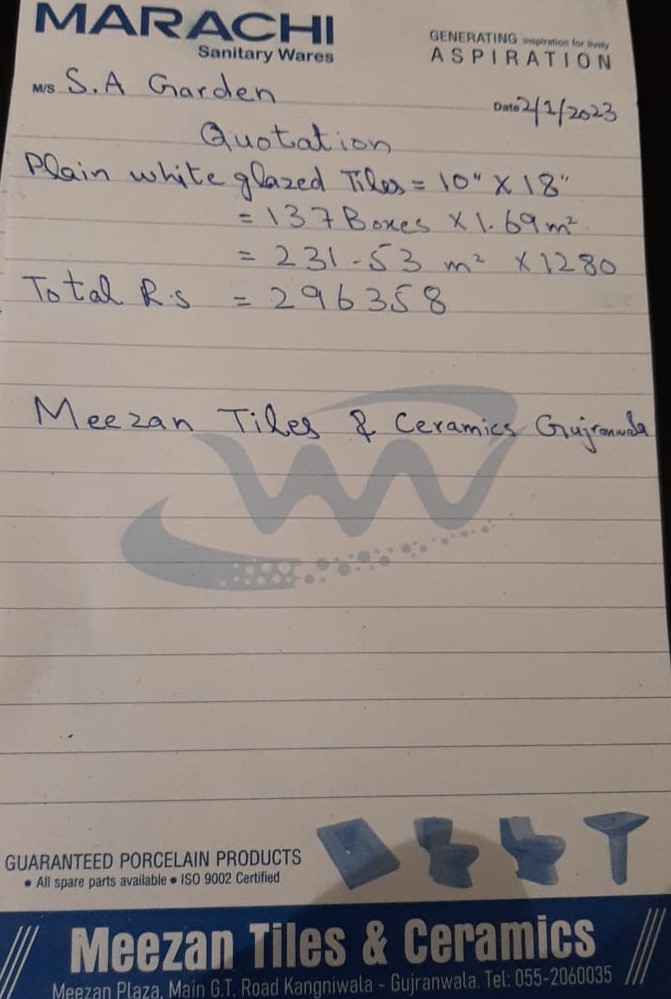 MARACHI
Sanitary Wares
GENERATING inspiration for lively
ASPIRATION
M/S S.A Garden
Date 2/1/2023
Quotation
Plain white glazed Tiles = 10" X 18"
= 137 Boxes X 1.69 m²
= 231-53 m² X 1280
Total R.s = 296358
Meezan Tiles & Ceramics Gujranwala
GUARANTEED PORCELAIN PRODUCTS
• All spare parts available • ISO 9002 Certified
Meezan Tiles & Ceramics
Meezan Plaza, Main G.T. Road Kangniwala - Gujranwala. Tel: 055-2060035